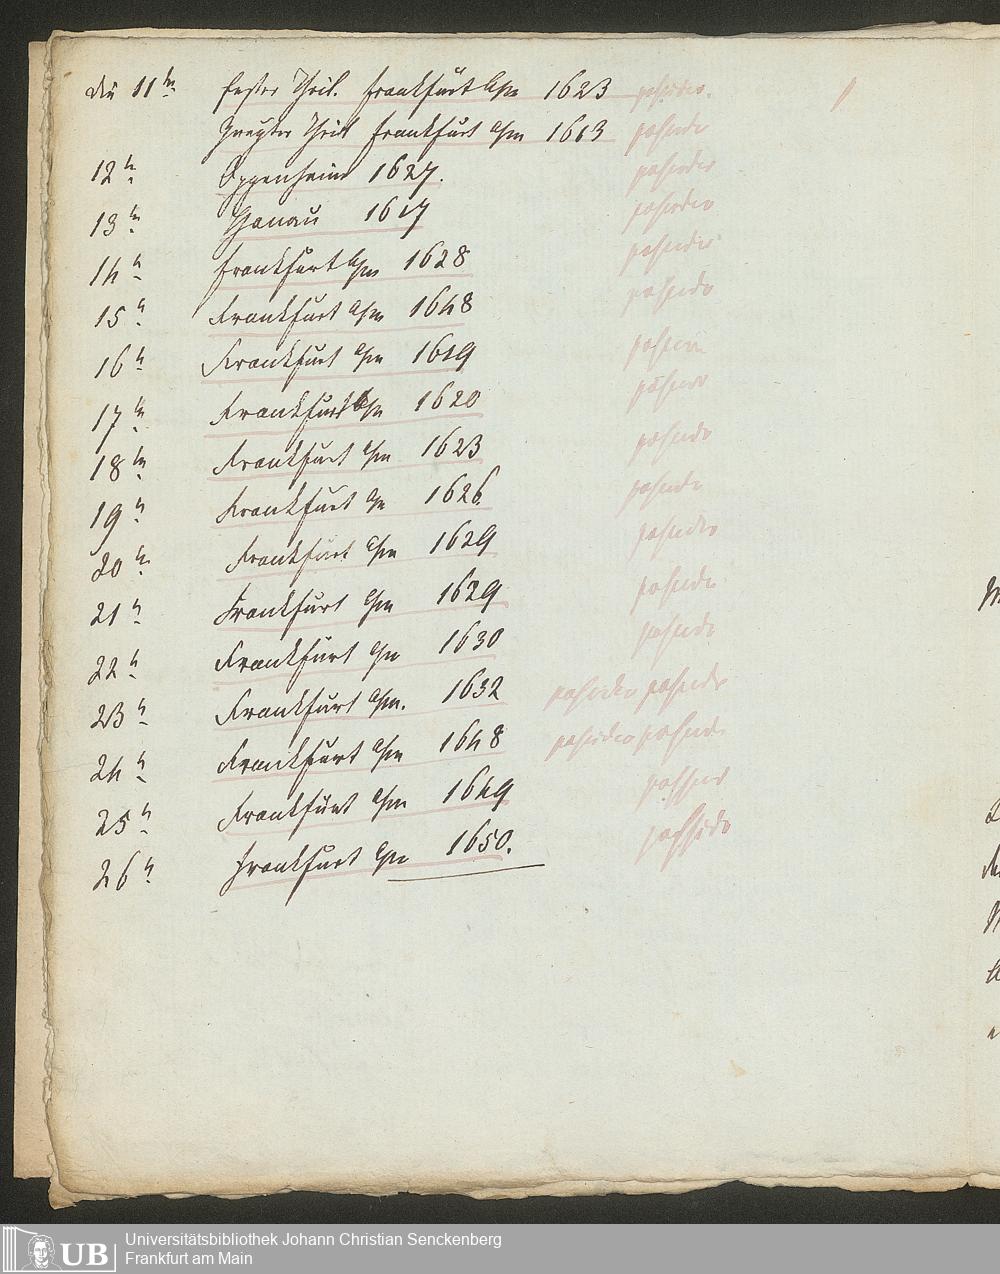 den 11ten Erster Theil. Frankfurt a/m 1623 possideo.
Zweyter Theil Frankfurt a/m 1613 possideo
12n Oppenheim 1627. possideo
13n Hanau 1617 possideo
14n Frankfurt a/m 1628 possideo
15n Frankfurt a/m 1648 possideo
16n Frankfurt a/m 1619 possideo
17n Frankfurt a/m 1620 possideo
18n Frankfurt a/m 1623 possideo
19n Frankfurt a/m 1626 possideo
20n Frankfurt a/m 1629 possideo
21n Frankfurt a/m 1629 possideo
22n Frankfurt a/m 1630 possideo
23n Frankfurt a/m. 1632 possideo possideo
24n Frankfurt a/m 1648 possideo possideo
25n Frankfurt a/m 1649 possideo
26n Frankfurt a/m 1650. possideo
UB
Universitätsbibliothek Johann Christian Senckenberg
Frankfurt am Main